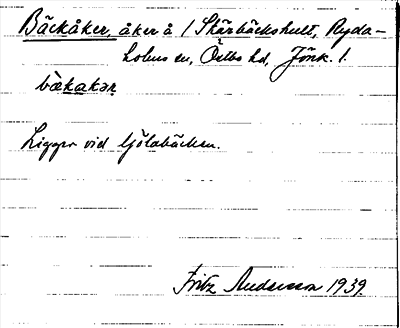 Bäckåker, åker å 1 Skärbäckshult, Ryda-
holms sn, Östbo hd, Jönk. l.
bækakər
Ligger vid ljölabäcken.
Fritz Andersson 1939.